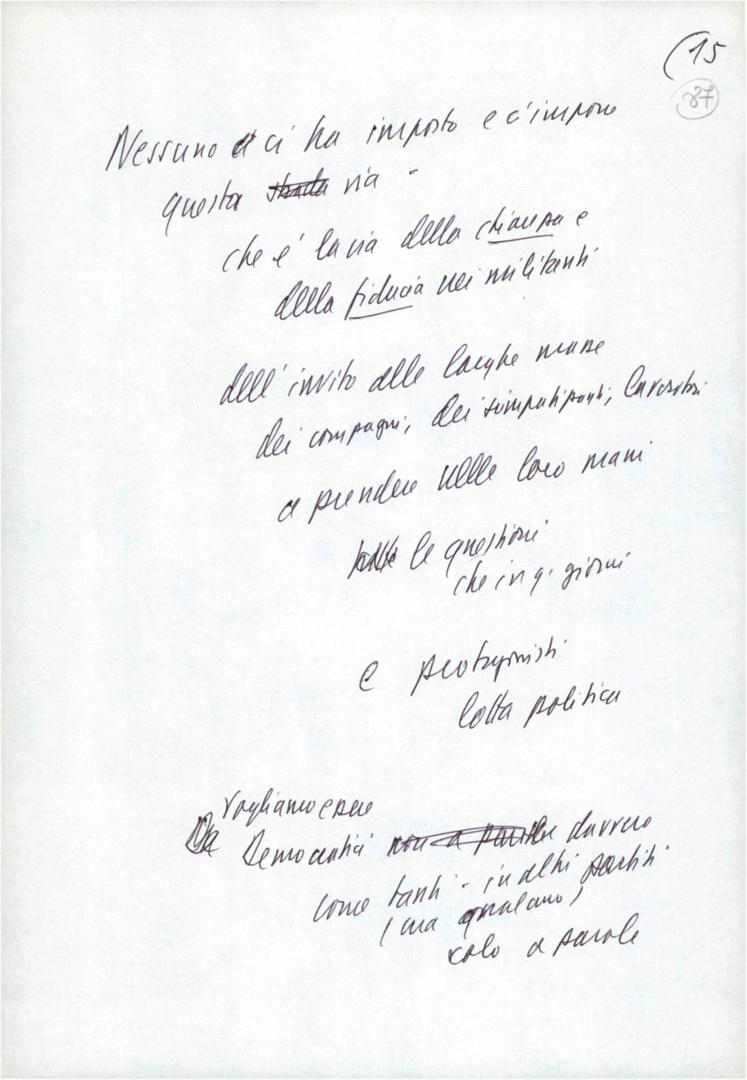 (15
87
Nessuno ci ha imposto e c'impone
questa strada via -
che e' la via della chiarezza e
della fiducia nei militanti
dell'invito alle larghe masse
dei compagni, dei simpatizzanti, lavoratori
a prendere nelle loro mani
tutte le questioni
che in q. giorni
e protagonisti
lotta politica
Vogliamo essere
Democratici non a parole davvero
come tanti - in altri partiti
(ma
solo a parole